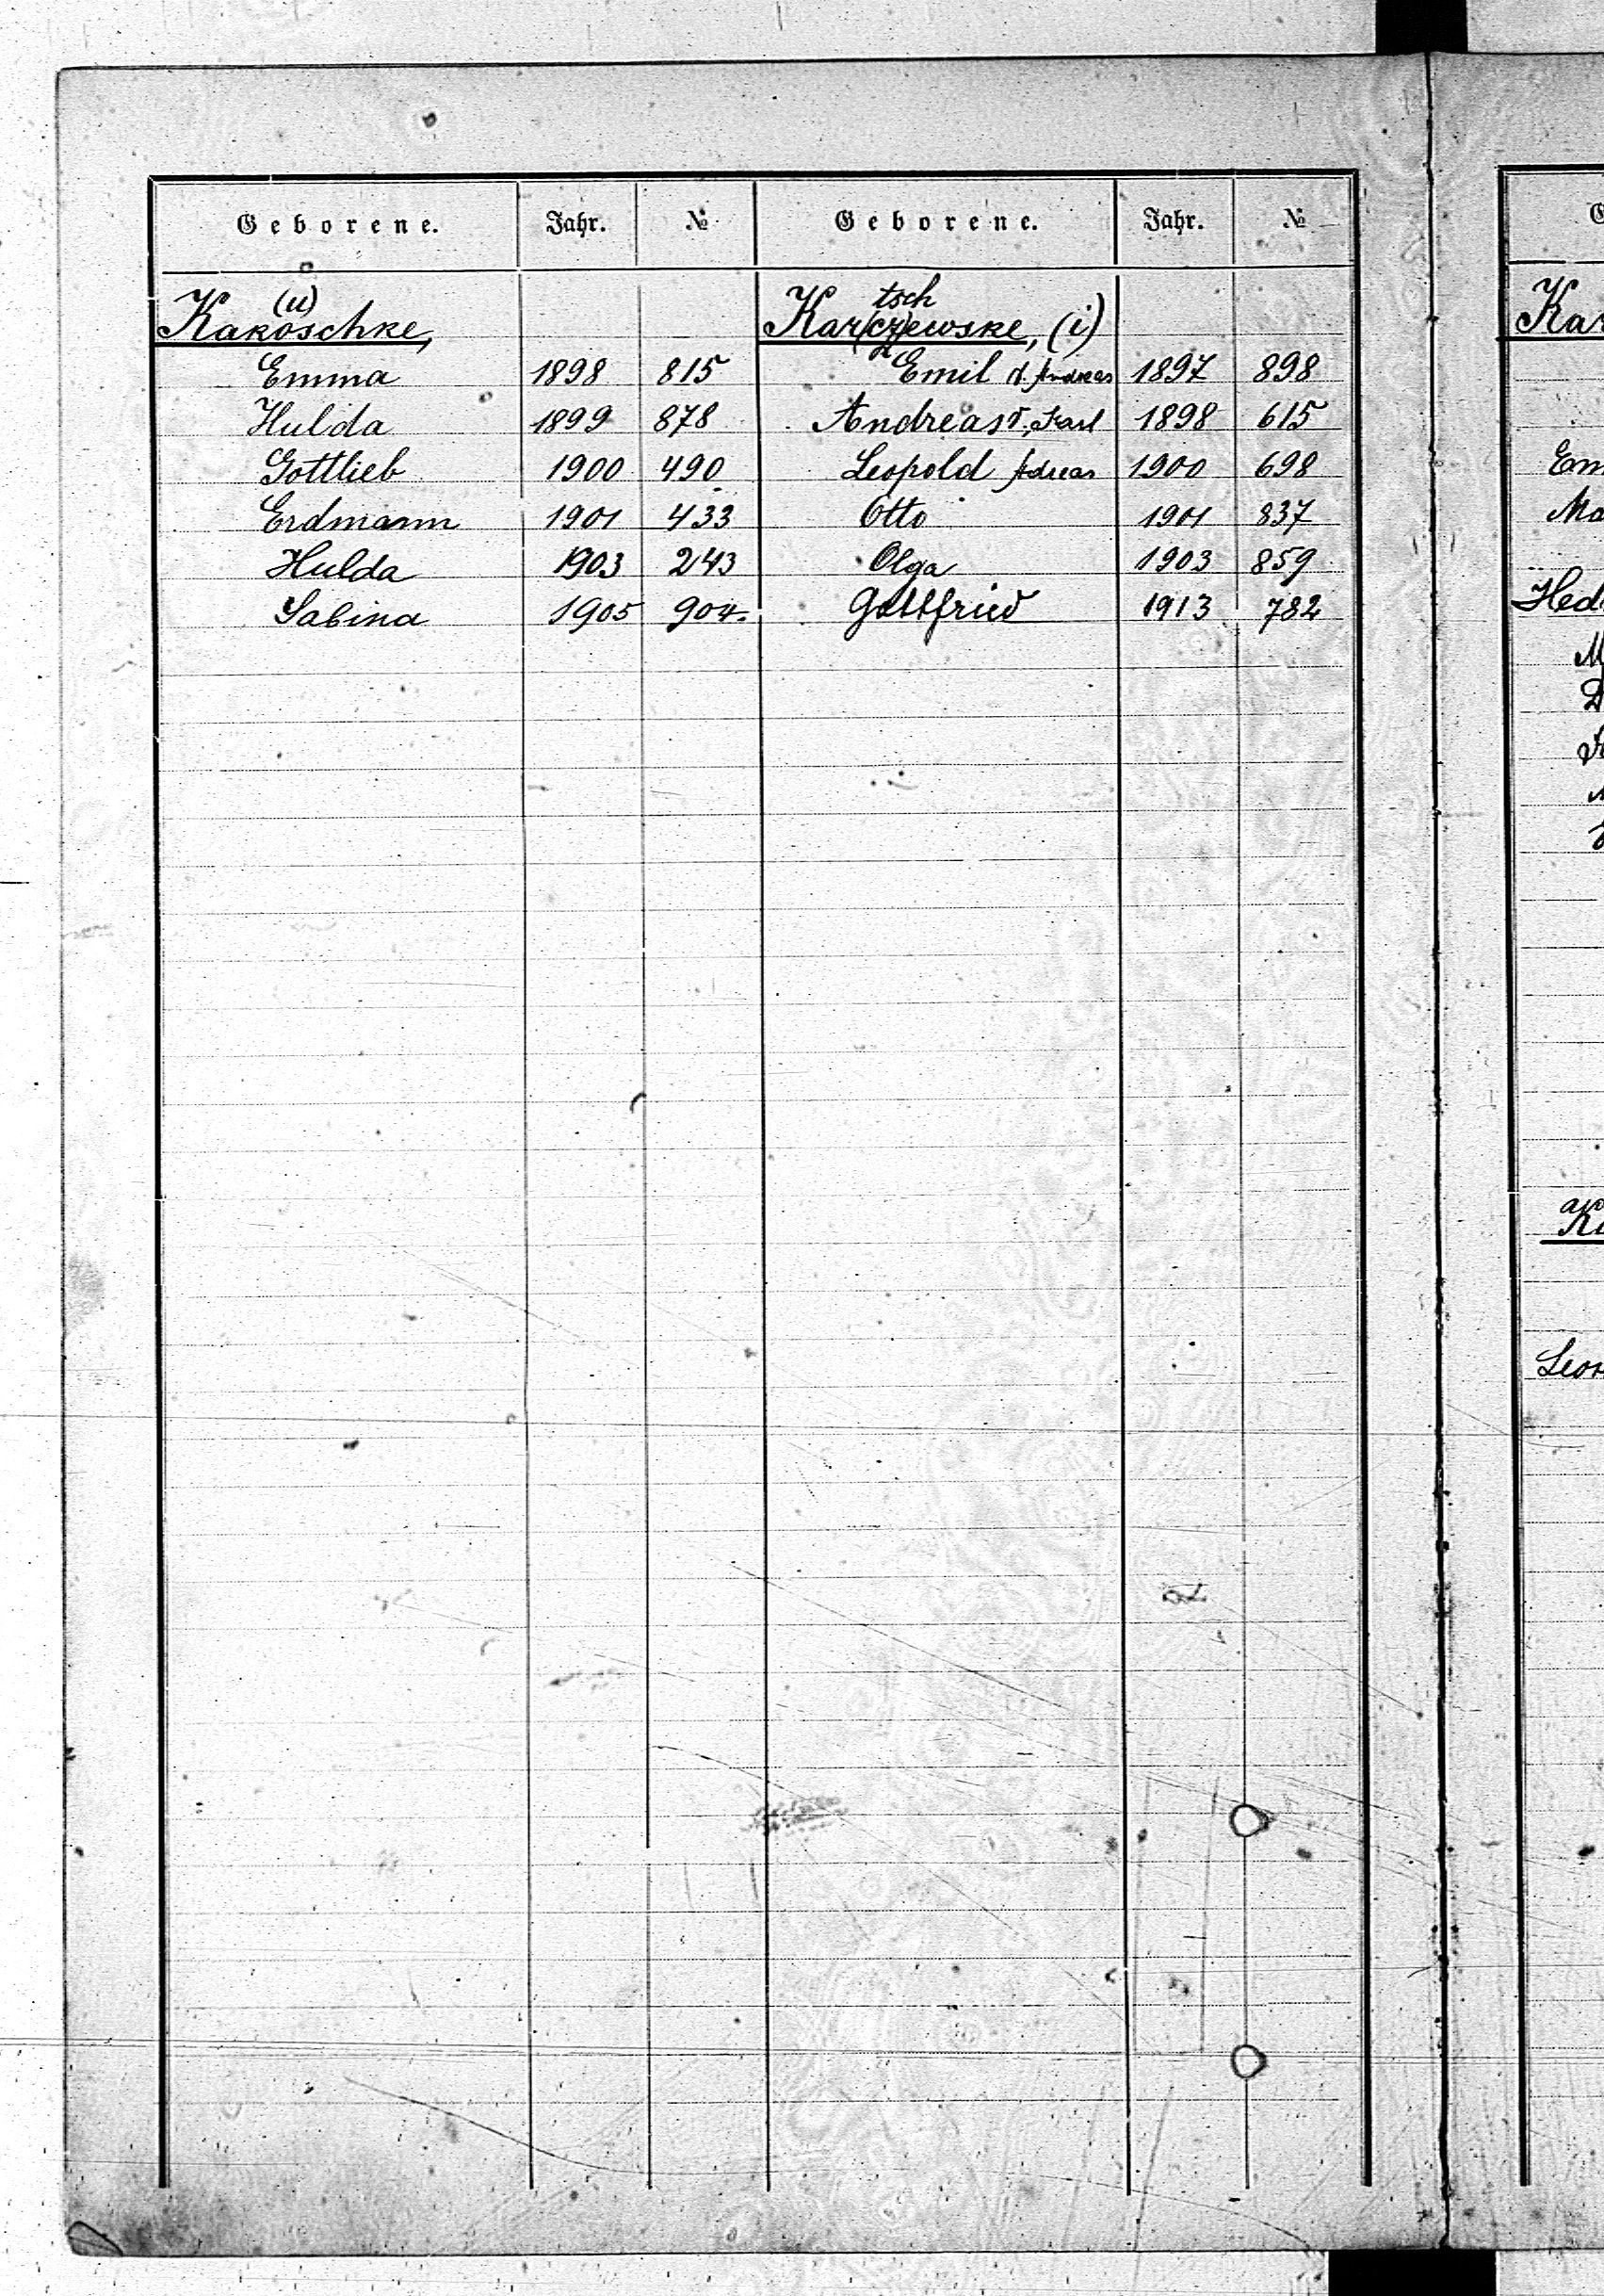 Geborene. Jahr. № Geborene. Jahr. №
(u)
Kakoschke,
Emma 1898 815
Hulda 1899 878
Gottlieb 1900 490
Erdmann 1901 433
Hulda 1903 243
Sabina 1905 904.
tsch
Kar(cz)ewske, (i)
Emil d. Andreas 1897 898
Andreas d. Karl 1898 615
Leopold Adreas 1900 698
Otto 1901 837
Olga 1903 859
Gottfried 1913 782
Kar
Em
Ma
Hed